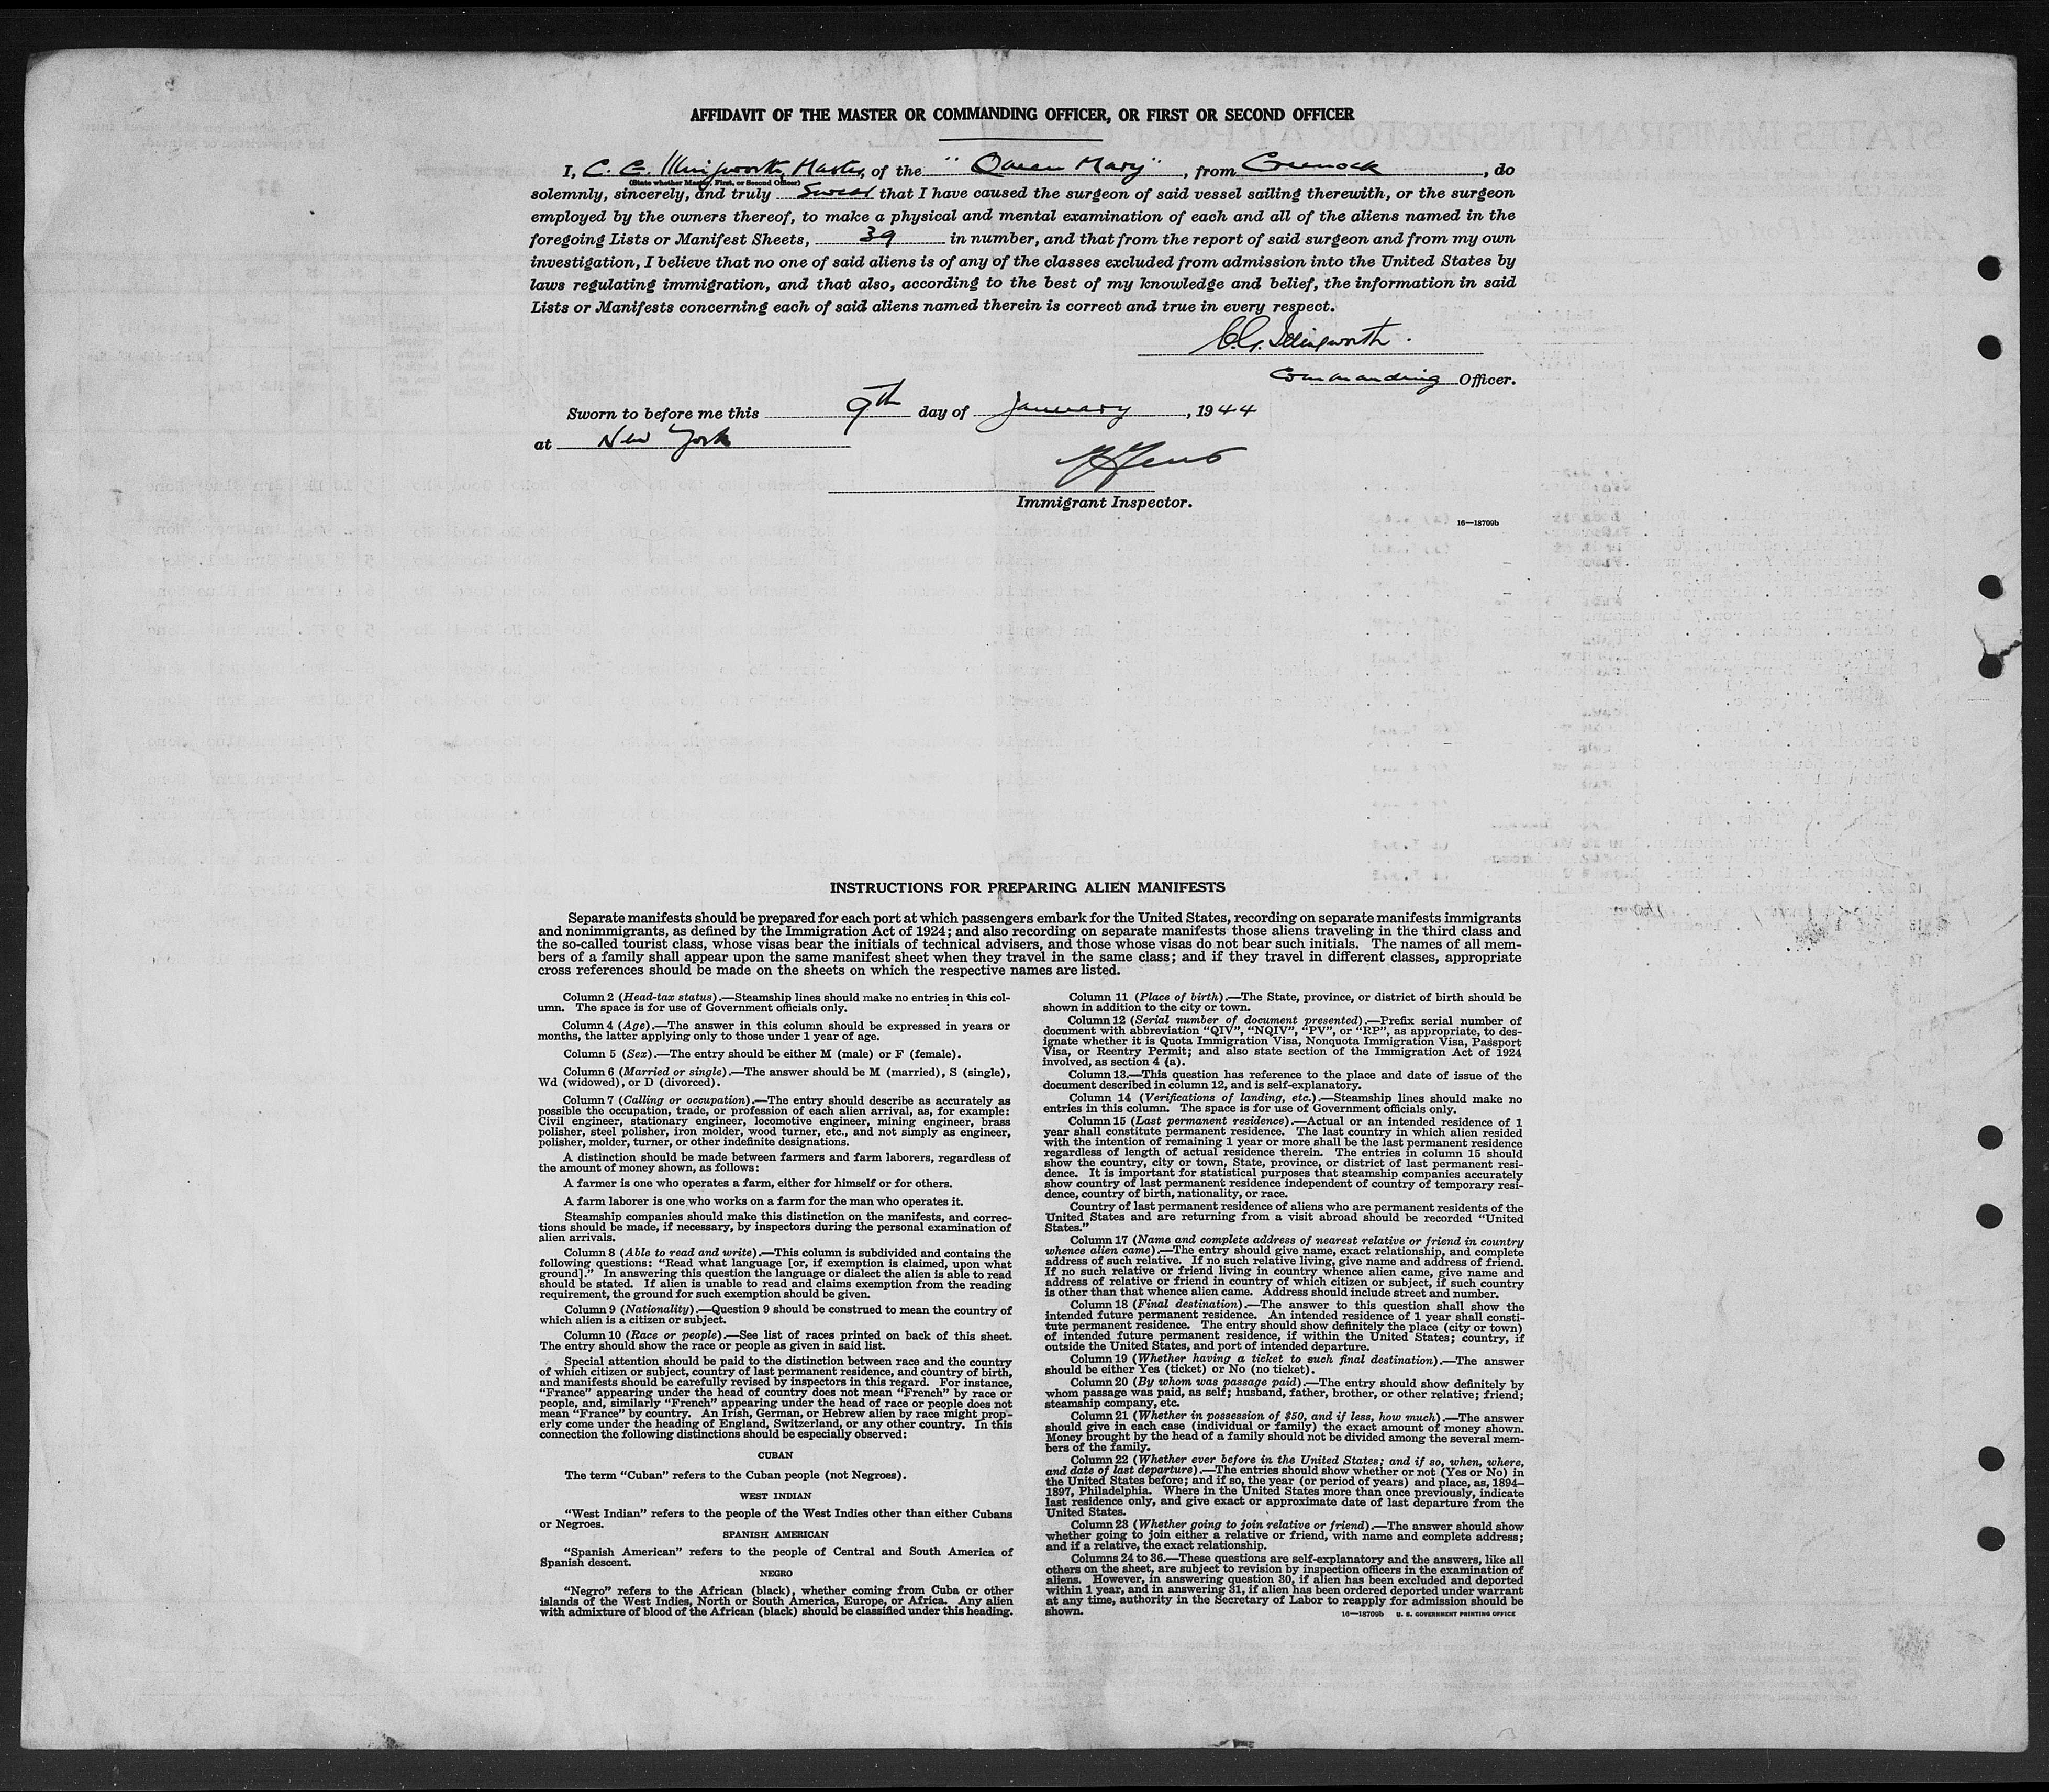 AFFIDAVIT OF THE MASTER OR COMMANDING OFFICER, OR FIRST OR SECOND OFFICER
I, C. G. Illingworth, Master, of the "Queen Mary", from Greenock, do
(State whether Master, First, or Second Officer)
solemnly, sincerely, and truly swear that I have caused the surgeon of said vessel sailing therewith, or the surgeon
employed by the owners thereof, to make a physical and mental examination of each and all of the aliens named in the
foregoing Lists or Manifest Sheets, 39 in number, and that from the report of said surgeon and from my own
investigation, I believe that no one of said aliens is of any of the classes excluded from admission into the United States by
laws regulating immigration, and that also, according to the best of my knowledge and belief, the information in said
Lists or Manifests concerning each of said aliens named therein is correct and true in every respect.
C. G. Illingworth.
Commanding Officer.
Sworn to before me this 9th day of January, 1944
at New York
Immigrant Inspector.
16—18709b
INSTRUCTIONS FOR PREPARING ALIEN MANIFESTS
Separate manifests should be prepared for each port at which passengers embark for the United States, recording on separate manifests immigrants
and nonimmigrants, as defined by the Immigration Act of 1924; and also recording on separate manifests those aliens traveling in the third class and
the so-called tourist class, whose visas bear the initials of technical advisers, and those whose visas do not bear such initials. The names of all mem-
bers of a family shall appear upon the same manifest sheet when they travel in the same class; and if they travel in different classes, appropriate
cross references should be made on the sheets on which the respective names are listed.
Column 2 (Head-tax status).—Steamship lines should make no entries in this col-
umn. The space is for use of Government officials only.
Column 4 (Age).—The answer in this column should be expressed in years or
months, the latter applying only to those under 1 year of age.
Column 5 (Sex).—The entry should be either M (male) or F (female).
Column 6 (Married or single).—The answer should be M (married), S (single),
Wd (widowed), or D (divorced).
Column 7 (Calling or occupation).—The entry should describe as accurately as
possible the occupation, trade, or profession of each alien arrival, as, for example:
Civil engineer, stationary engineer, locomotive engineer, mining engineer, brass
polisher, steel polisher, iron molder, wood turner, etc., and not simply as engineer,
polisher, molder, turner, or other indefinite designations.
A distinction should be made between farmers and farm laborers, regardless of
the amount of money shown, as follows:
A farmer is one who operates a farm, either for himself or for others.
A farm laborer is one who works on a farm for the man who operates it.
Steamship companies should make this distinction on the manifests, and correc-
tions should be made, if necessary, by inspectors during the personal examination of
alien arrivals.
Column 8 (Able to read and write).—This column is subdivided and contains the
following questions: "Read what language [or, if exemption is claimed, upon what
ground]." In answering this question the language or dialect the alien is able to read
should be stated. If alien is unable to read and claims exemption from the reading
requirement, the ground for such exemption should be given.
Column 9 (Nationality).—Question 9 should be construed to mean the country of
which alien is a citizen or subject.
Column 10 (Race or people).—See list of races printed on back of this sheet.
The entry should show the race or people as given in said list.
Special attention should be paid to the distinction between race and the country
of which citizen or subject, country of last permanent residence, and country of birth,
and manifests should be carefully revised by inspectors in this regard. For instance,
"France" appearing under the head of country does not mean "French" by race or
people, and, similarly "French" appearing under the head of race or people does not
mean "France" by country. An Irish, German, or Hebrew alien by race might prop-
erly come under the heading of England, Switzerland, or any other country. In this
connection the following distinctions should be especially observed:
CUBAN
The term "Cuban" refers to the Cuban people (not Negroes).
WEST INDIAN
"West Indian" refers to the people of the West Indies other than either Cubans
or Negroes.
SPANISH AMERICAN
"Spanish American" refers to the people of Central and South America of
Spanish descent.
NEGRO
"Negro" refers to the African (black), whether coming from Cuba or other
islands of the West Indies, North or South America, Europe, or Africa. Any alien
with admixture of blood of the African (black) should be classified under this heading.
Column 11 (Place of birth).—The State, province, or district of birth should be
shown in addition to the city or town.
Column 12 (Serial number of document presented).—Prefix serial number of
document with abbreviation "QIV", "NQIV", "PV", or "RP", as appropriate, to des-
ignate whether it is Quota Immigration Visa, Nonquota Immigration Visa, Passport
Visa, or Reentry Permit; and also state section of the Immigration Act of 1924
involved, as section 4 (a).
Column 13.—This question has reference to the place and date of issue of the
document described in column 12, and is self-explanatory.
Column 14 (Verifications of landing, etc.).—Steamship lines should make no
entries in this column. The space is for use of Government officials only.
Column 15 (Last permanent residence).—Actual or an intended residence of 1
year shall constitute permanent residence. The last country in which alien resided
with the intention of remaining 1 year or more shall be the last permanent residence
regardless of length of actual residence therein. The entries in column 15 should
show the country, city or town, State, province, or district of last permanent resi-
dence. It is important for statistical purposes that steamship companies accurately
show country of last permanent residence independent of country of temporary resi-
dence, country of birth, nationality, or race.
Country of last permanent residence of aliens who are permanent residents of the
United States and are returning from a visit abroad should be recorded "United
States."
Column 17 (Name and complete address of nearest relative or friend in country
whence alien came).—The entry should give name, exact relationship, and complete
address of such relative. If no such relative living, give name and address of friend.
If no such relative or friend living in country whence alien came, give name and
address of relative or friend in country of which citizen or subject, if such country
is other than that whence alien came. Address should include street and number.
Column 18 (Final destination).—The answer to this question shall show the
intended future permanent residence. An intended residence of 1 year shall consti-
tute permanent residence. The entry should show definitely the place (city or town)
of intended future permanent residence, if within the United States; country, if
outside the United States, and port of intended departure.
Column 19 (Whether having a ticket to such final destination).—The answer
should be either Yes (ticket) or No (no ticket).
Column 20 (By whom was passage paid).—The entry should show definitely by
whom passage was paid, as self; husband, father, brother, or other relative; friend;
steamship company, etc.
Column 21 (Whether in possession of $50, and if less, how much).—The answer
should give in each case (individual or family) the exact amount of money shown.
Money brought by the head of a family should not be divided among the several mem-
bers of the family.
Column 22 (Whether ever before in the United States; and if so, when, where,
and date of last departure).—The entries should show whether or not (Yes or No) in
the United States before; and if so, the year (or period of years) and place, as, 1894–
1897, Philadelphia. Where in the United States more than once previously, indicate
last residence only, and give exact or approximate date of last departure from the
United States.
Column 23 (Whether going to join relative or friend).—The answer should show
whether going to join either a relative or friend, with name and complete address;
and if a relative, the exact relationship.
Columns 24 to 36.—These questions are self-explanatory and the answers, like all
others on the sheet, are subject to revision by inspection officers in the examination of
aliens. However, in answering question 30, if alien has been excluded and deported
within 1 year, and in answering 31, if alien has been ordered deported under warrant
at any time, authority in the Secretary of Labor to reapply for admission should be
shown.
16—18709b U. S. GOVERNMENT PRINTING OFFICE